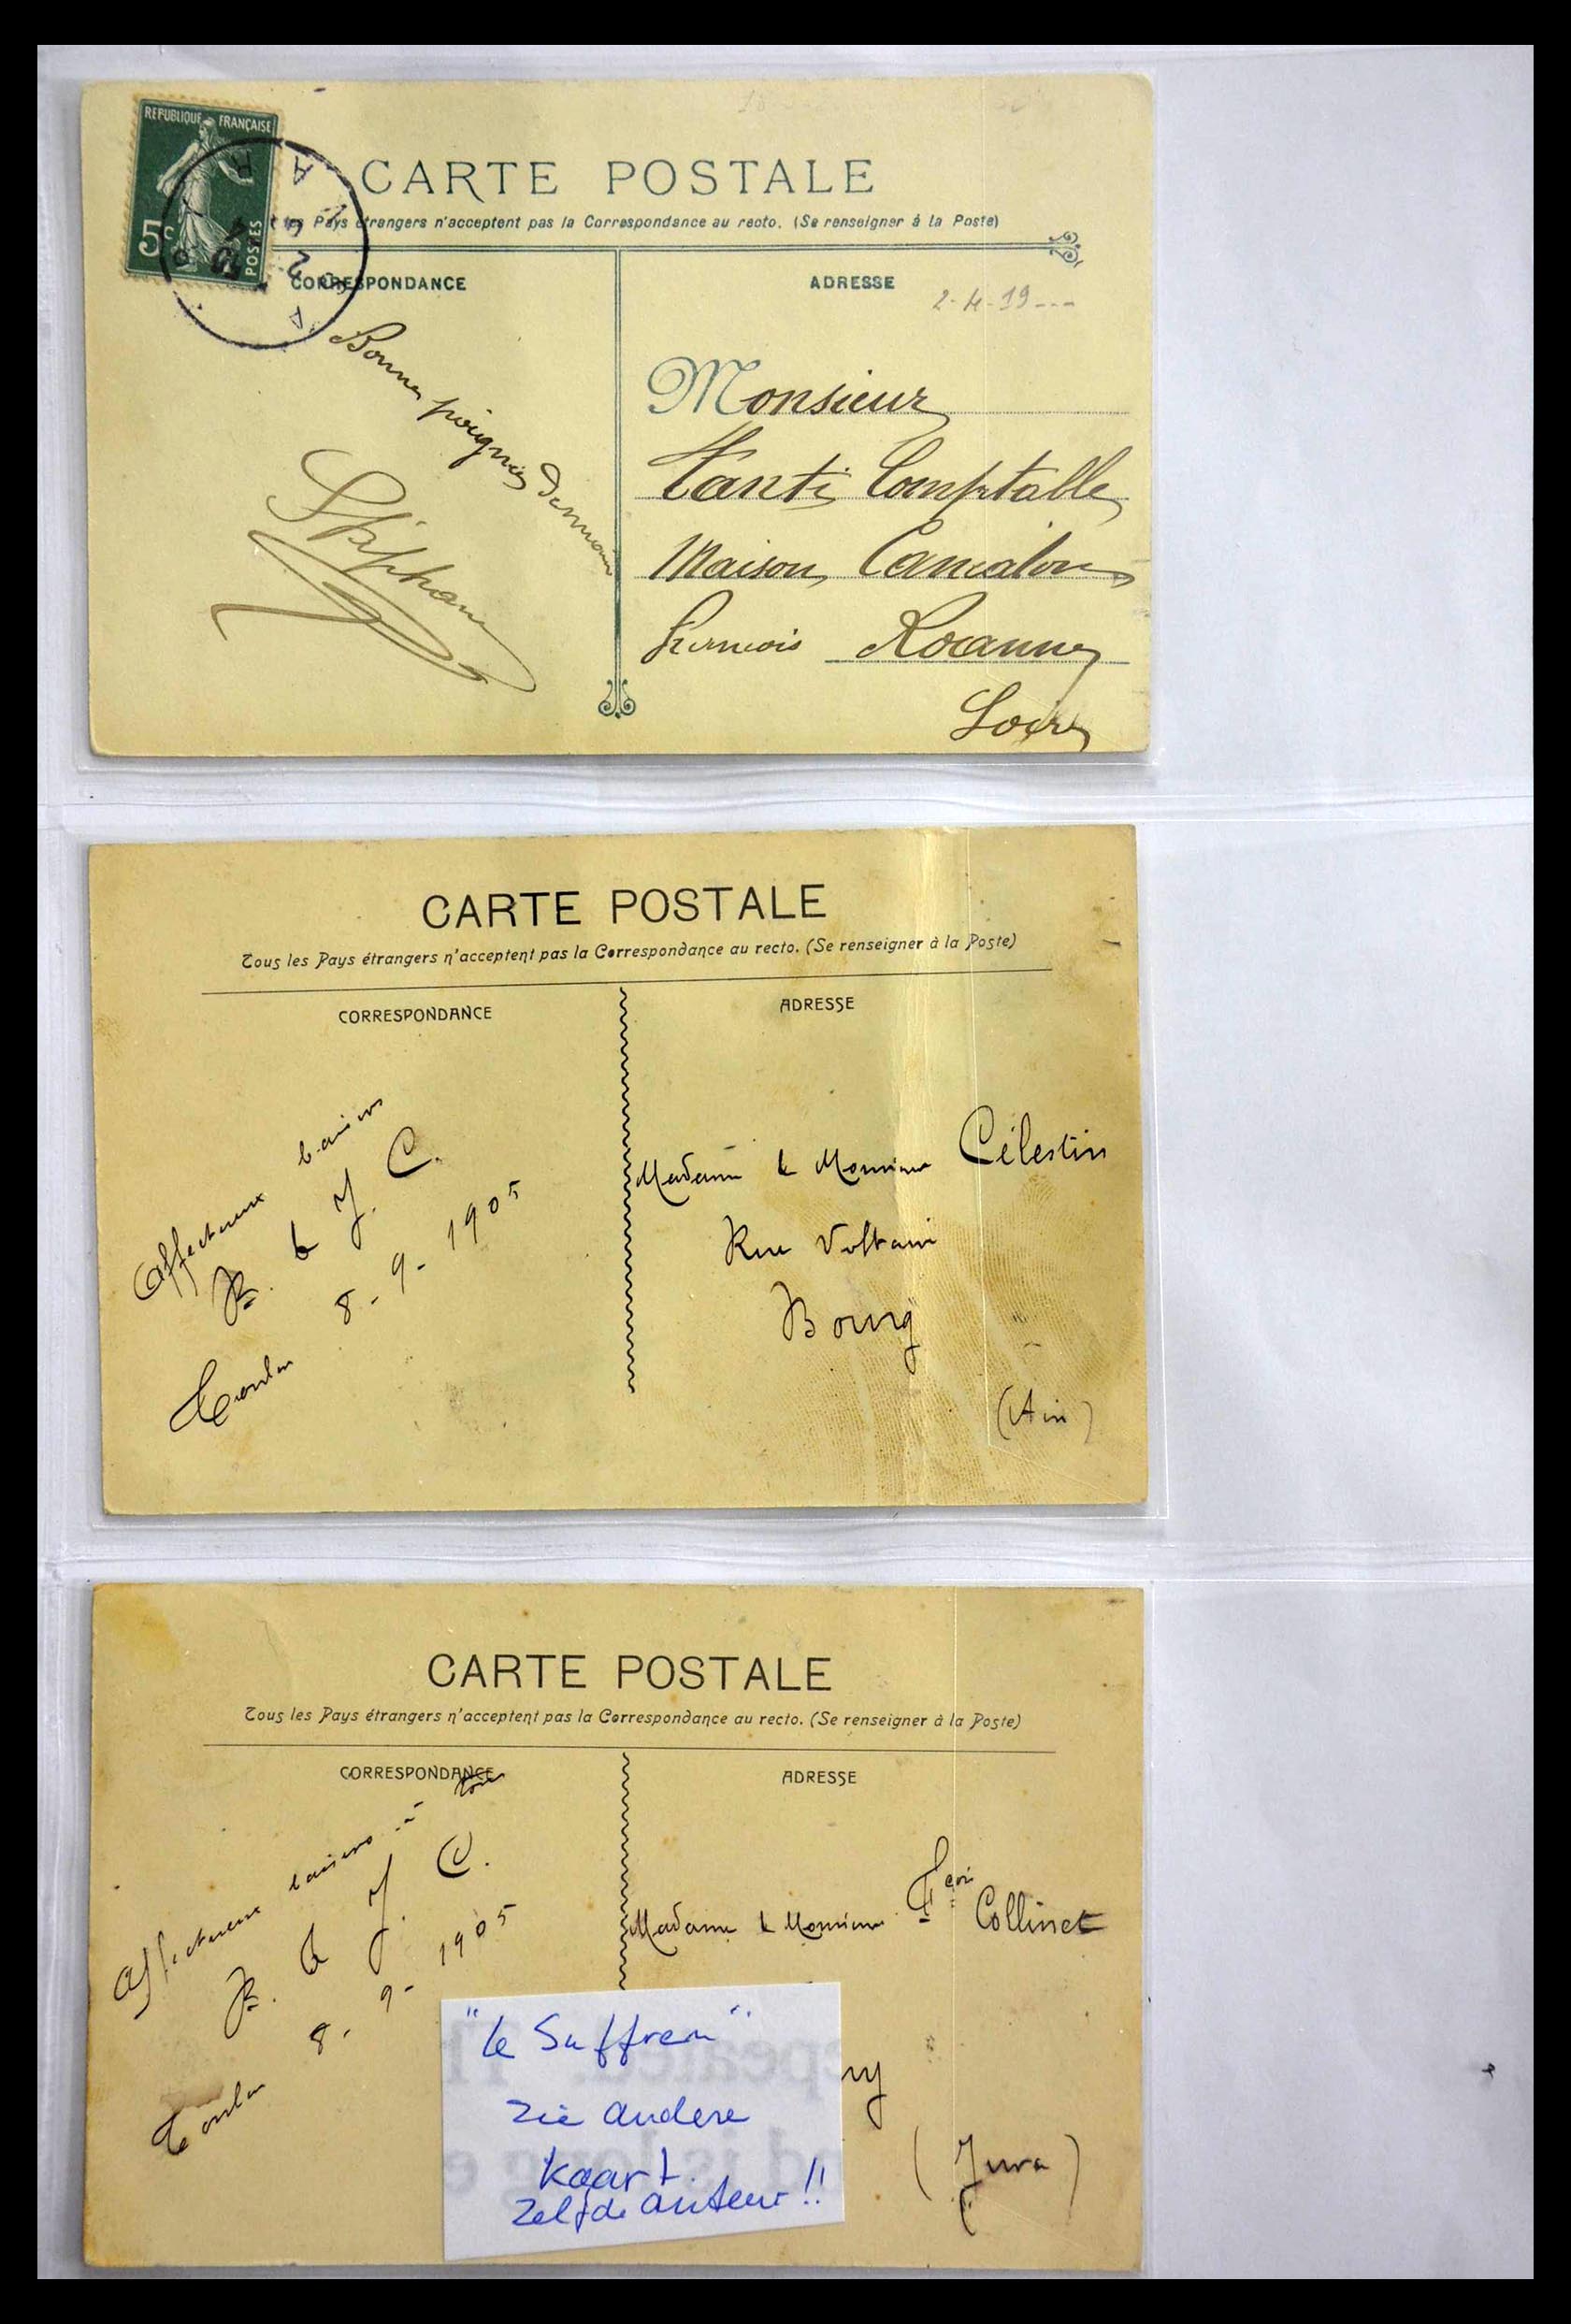 REPUBLIQUE FRANÇAISE
5c POSTES
CARTE POSTALE
Pays étrangers n'acceptent pas la Correspondance au recto. (Se renseigner à la Poste)
CORRESPONDANCE
Bonnes poignées Demain
Stéphane
ADRESSE
2-4-19---
Monsieur
Comptable
Maison
Roanne
Loire
CARTE POSTALE
Tous les Pays étrangers n'acceptent pas la Correspondance au recto. (Se renseigner à la Poste)
CORRESPONDANCE
Affectueux baisers
B. & J. C.
Toulon 8-9-1905
ADRESSE
Madame & Monsieur Célestin
Rue Voltaire
Bourg
(Ain)
CARTE POSTALE
Tous les Pays étrangers n'acceptent pas la Correspondance au recto. (Se renseigner à la Poste)
CORRESPONDANCE
Affectueux baisers à tous
B. & J. C.
Toulon 8-9-1905
ADRESSE
Madame & Monsieur Collinet
ny
(Jura)
"Le Suffren"
Zie andere
kaart.
Zelfde auteur!!